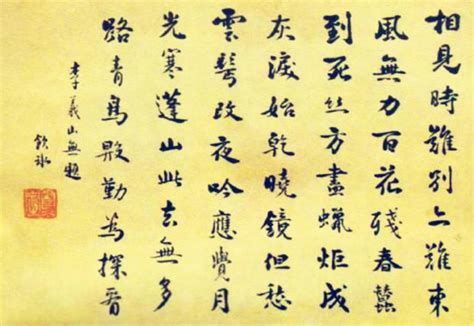 相見時難別亦難東
風無力百花残春蠶
到死丝方盡蠟炬成
灰淚始乾曉鏡但愁
雲鬢改夜吟應覺月
光寒蓬山此去無多
路青鳥殷勤為探看
李義山無題
飲冰